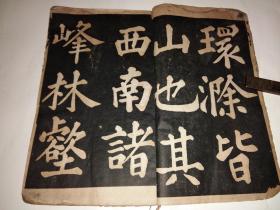 環滁皆
山也其
西南諸
峰林壑